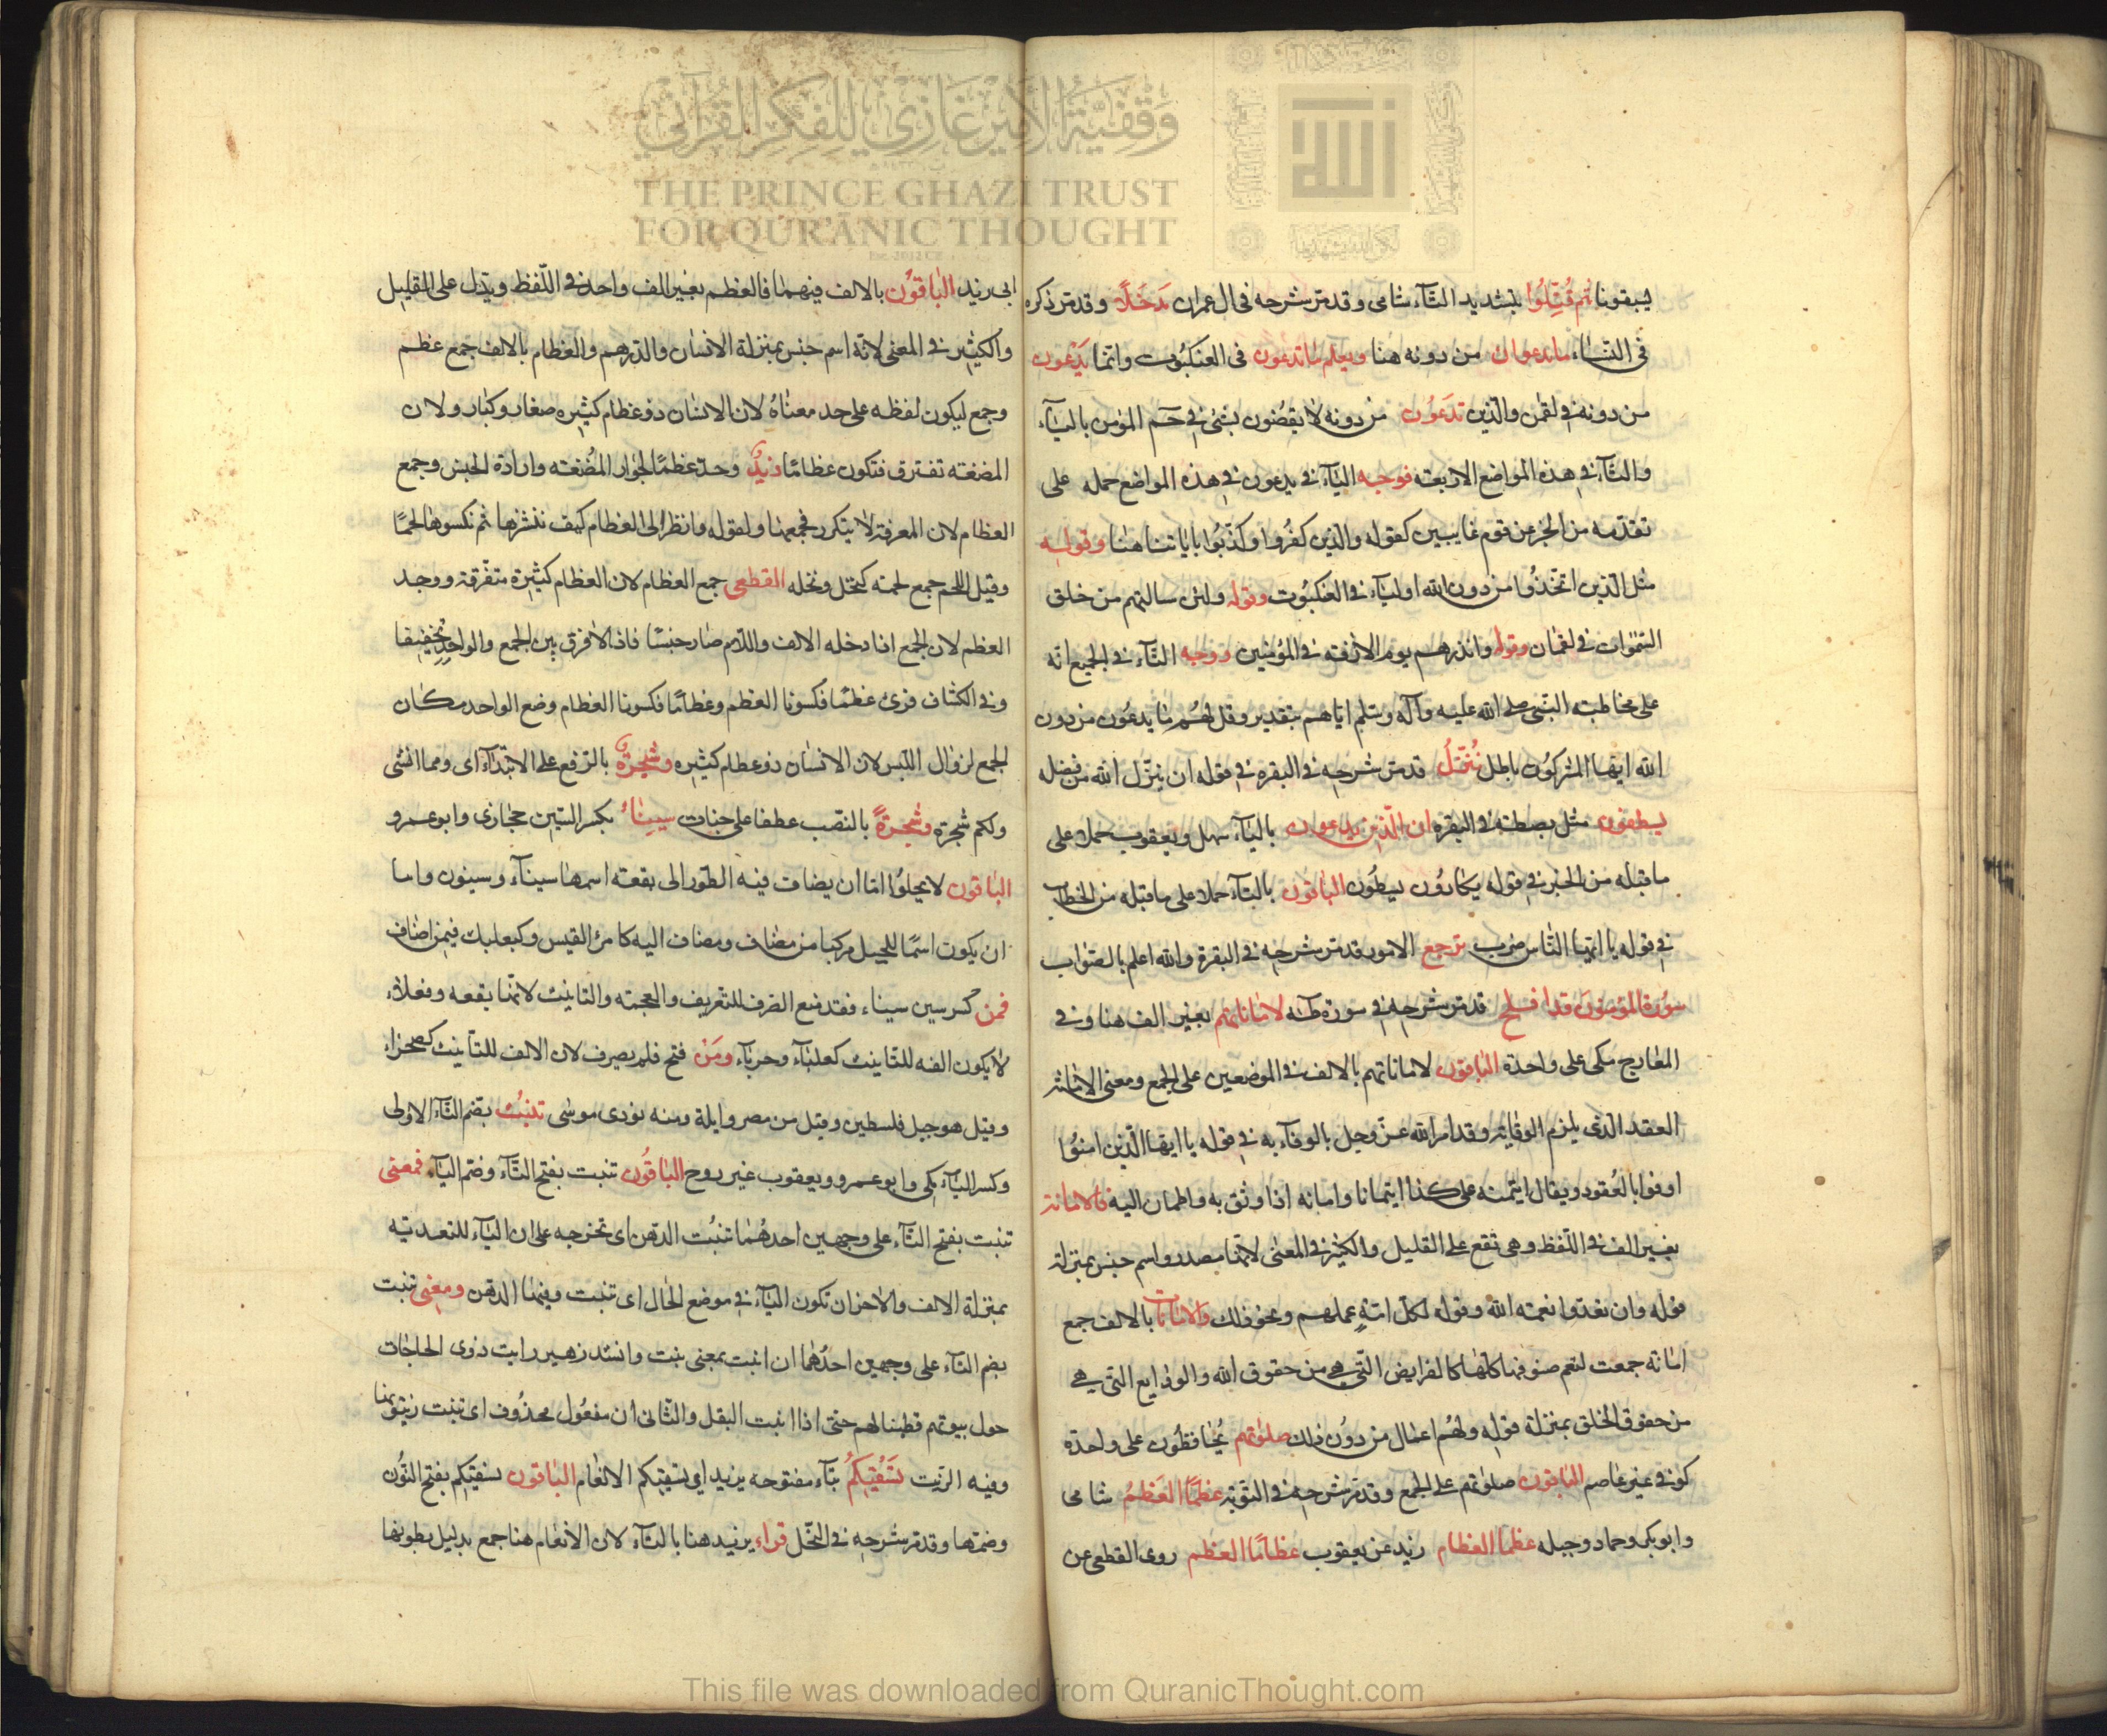 وقفية الأمير غازي للفكر القرآني
THE PRINCE GHAZI TRUST
FOR QUR'ANIC THOUGHT
Est. 2012 CE
يسبقونا ثم قُتِّلُوا بتشديد التآء شامى وقد مر شرحه فى ال عمران مَدخَلًا وقد مر ذكره
فى النسآء ما يدعون من دونه هنا ويعلم ما تدعون فى العنكبُوت وانما يَدْعون
من دونه فى لقمن والذين تدعَوُن من دونه لا يقضُون بشئ فى حم المؤمن باليآء
والتآء فى هذه المواضع الاربعة فوجه اليآء فى يدعون فى هذه المواضع حمله على
تقدمه من الخبر عن قوم غايبين كقوله والذين كفرُوا وكذّبُوا باياتنا هنا وقوله
مثل الذين اتخذُوا من دون الله اوليآء فى العنكبُوت وقوله ولئن سالتهم من خلق
السموات فى لقمان وقوله وانذرهم يوم الازفة فى المؤمنين ووجه التآء فى الجميع انه
على مخاطبة النبى صلى الله عليه وآله وسلم اياهم بتقدير وقل لهُم ما يدعُون من دون
الله ايها المشركوُن باطل نُنَزّلُ قد مر شرحه فى البقره فى قوله ان ينزّل الله من فضله
يسطون مثل بصطة فى البقره ان الّذين يدعون باليآء سهل ويعقوب حملا على
ما قبله من الخبر فى قوله يكادوُن يسطُون الباقون بالتآء حملا على ما قبله من الخطاب
فى قوله يا ايها الناس ضرب ترجع الامور قد مر شرحه فى البقرة والله اعلم بالصواب
سُورة المؤمنون قد افلح قد مر شرحه فى سورة طه لاماناتهم بغير الف هنا وفى
المعارج مكى على واحدة الباقون لاماناتهم بالالف فى الموضعين على الجمع ومعنى الامانة
العقد الذى يلزم الوفاء به وقد امر الله عزّ وجل بالوفآء به فى قوله يا ايها الذين امنُوا
اوفوا بالعُقود ويقال ايتمنه على كذا ايتمانا وامانه اذا وثق به واطمان اليه فالامانة
بغير الف فى اللفظ وهى تقع على القليل والكثير فى المعنى لانها مصدر واسم جنس بمنزلة
قوله وان تعدّوا نعمة الله وقوله لكل امةٍ عملهم ونحو ذلك والامانات بالالف جمع
امانة جمعت لتعم صنوفها كلها كالفرايض التى هى من حقوق الله والودايع التى هى
من حقوق الخلق بمنزلة قوله ولهُم اعمال من دوُن ذلك صلوٰتهم يُحافظون على واحدة
كوفى غير عاصم الباقون صلوٰتهم على الجمع وقد مر شرحه فى التوبة عظمًا العَظمَ شامى
وابوبكر وحماد وجبله عظما العظام زيد عن يعقوب عظامًا العظم روى القطعى عن
ابى زيد الباقوُن بالالف فيهما فالعظم بغير الف واحد فى اللّفظ ويدل على القليل
والكثير فى المعنى لانّه اسم جنس بمنزلة الانسان والدرهم والعظام بالالف جمع عظم
وجمع ليكون لفظه على حد معناهُ لان الانسان ذو عظام كثيره صغار وكبار ولان
المضغه تفترق فتكون عظامًا زيدٌ وحدّ عظمًا لجوار المُضغة وارادة الجنس وجمع
العظام لان المعرفة لا يتكرر فجمعها ولقوله وانظر الى العظام كيف ننشزها ثم نكسوها لحمًا
وقيل اللحم جمع لحمه كنخل ونخله القطعى جمع العظام لان العظام كثيرة متفرقة ووحد
العظم لان الجمع اذا دخله الالف واللام صار جنسًا فاذا لا فرق بين الجمع والواحد
وفى الكشاف قرئ عظمًا فكسونا العظم وعظامًا فكسونا العظام وضع الواحد مكان
الجمع لزوال اللبس لان الانسان ذو عظام كثيره وشجرةٌ بالرفع على الابتدآء اى ومما انشئ
ولكم شجرة وشجرةً بالنصب عطفا على جنات سِيناءَ بكسر السين حجازى وابو عمرو
الباقون لا يخلوُا اما ان يضاف فيه الطّور الى بقعة اسمها سينآء وسينون واما
ان يكون اسمًا للجبل مركبا من مضاف ومضاف اليه كامرئ القيس وكبعلبك فيمن اضاف
فمن كسر سين سيناء فقد منع الصرف للتعريف والعجمة والتانيث لانها بقعه وفعلاء
لا يكون الفه للتانيث كعلبآء وحربآء ومَن فتح فلم يصرف لان الالف للتانيث كصحراء
وقيل هو جبل فلسطين وقيل من مصر وايلة ومنه نودى موسى تنبُت بضم التآء الاولى
وكسر البآء مكى وابو عمرو ويعقوب غير روح الباقُون تنبت بفتح التآء وضم البآء فمعنى
تنبت بفتح التآء على وجهين احدهُما تنبُت الدهن اى تخرجه على ان البآء للتعدية
بمنزلة الالف والاخر ان تكون البآء فى موضع الحال اى تنبت وفيها الدهن ومعنى تنبت
بضم التآء على وجهين احدُهما ان انبت بمعنى نبت وانشد زهير رايت ذوى الحاجات
حول بيوتهم قطينا لهم حتى اذا انبت البقل والثانى ان مفعُول محذُوف اى تنبت زيتونها
وفيه الزيت تَسْقيكُم بتآء مفتوحه يزيد اى تسقيكم الانعام الباقون نسقيكم بفتح النُون
وضمها وقد مر شرحه فى النّحل قراء يزيد هنا بالتآء لان الانعام هنا جمع بدليل بطونها
This file was downloaded from QuranicThought.com